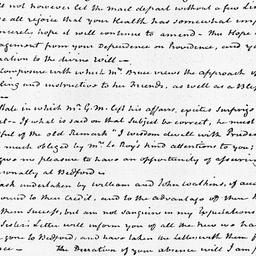 ll not however let the mail depart without a few Lin
we all rejoice that your Health has somewhat imp
sincerely hope it will continue to amend - the Hope
agement from your Dependence on Providence, and yo
nation to the divine Will -
Composure with which Mrs. Bruce views the approach o
ding and instructive to her Friends, as well as a Bless
State in which Mr. G.M. left his affairs, excites Surpriz
t - If what is said on that Subject be correct, he must
ful of the old Remark "I wisdom dwell with Prude
much obliged by Mrs. Le Roy's kind attentions to you;
give me pleasure to have an opportunity of assuring
sonally at Bedford -
ask undertaken by William and John Watkins, of
ound to their Credit, and to the advantage of their
them success, but am not sanguine in my Expectations
Sister's Letter will inform you of all the news we ha
gone to Bedford, and have taken the Letters with them
- The Duration of your absence will I am